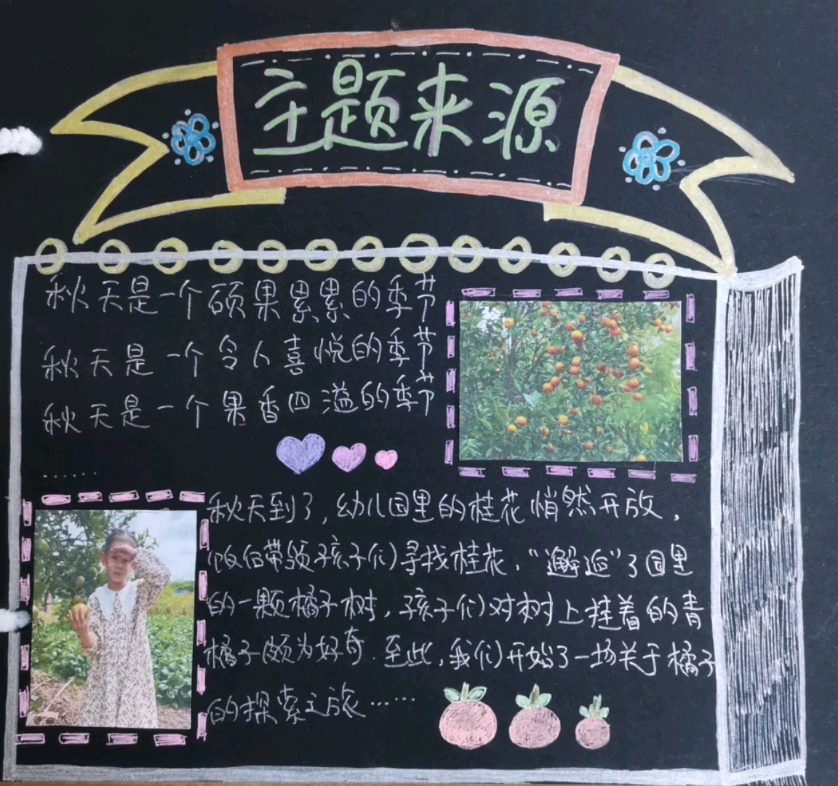 主题来源
秋天是一个硕果累累的季节
秋天是一个令人喜悦的季节
秋天是一个果香四溢的季节
……
秋天到了，幼儿园里的桂花悄然开放，
饭后带领孩子们寻找桂花，“邂逅”了园里
的一颗橘子树，孩子们对树上挂着的青
橘子颇为好奇.至此，我们开始了一场关于橘子
的探索之旅……